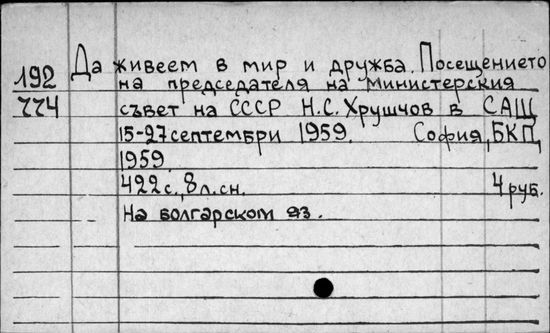 Да живеем в мир и дружба. Посещението
192 на председателя на Министерския
774 съвет на СССР Н.С. Хрушчов в САЩ
15-27 септември 1959. София, БКП,
1959.
422 с., 8 л. сн. 4 руб.
На болгарском яз.